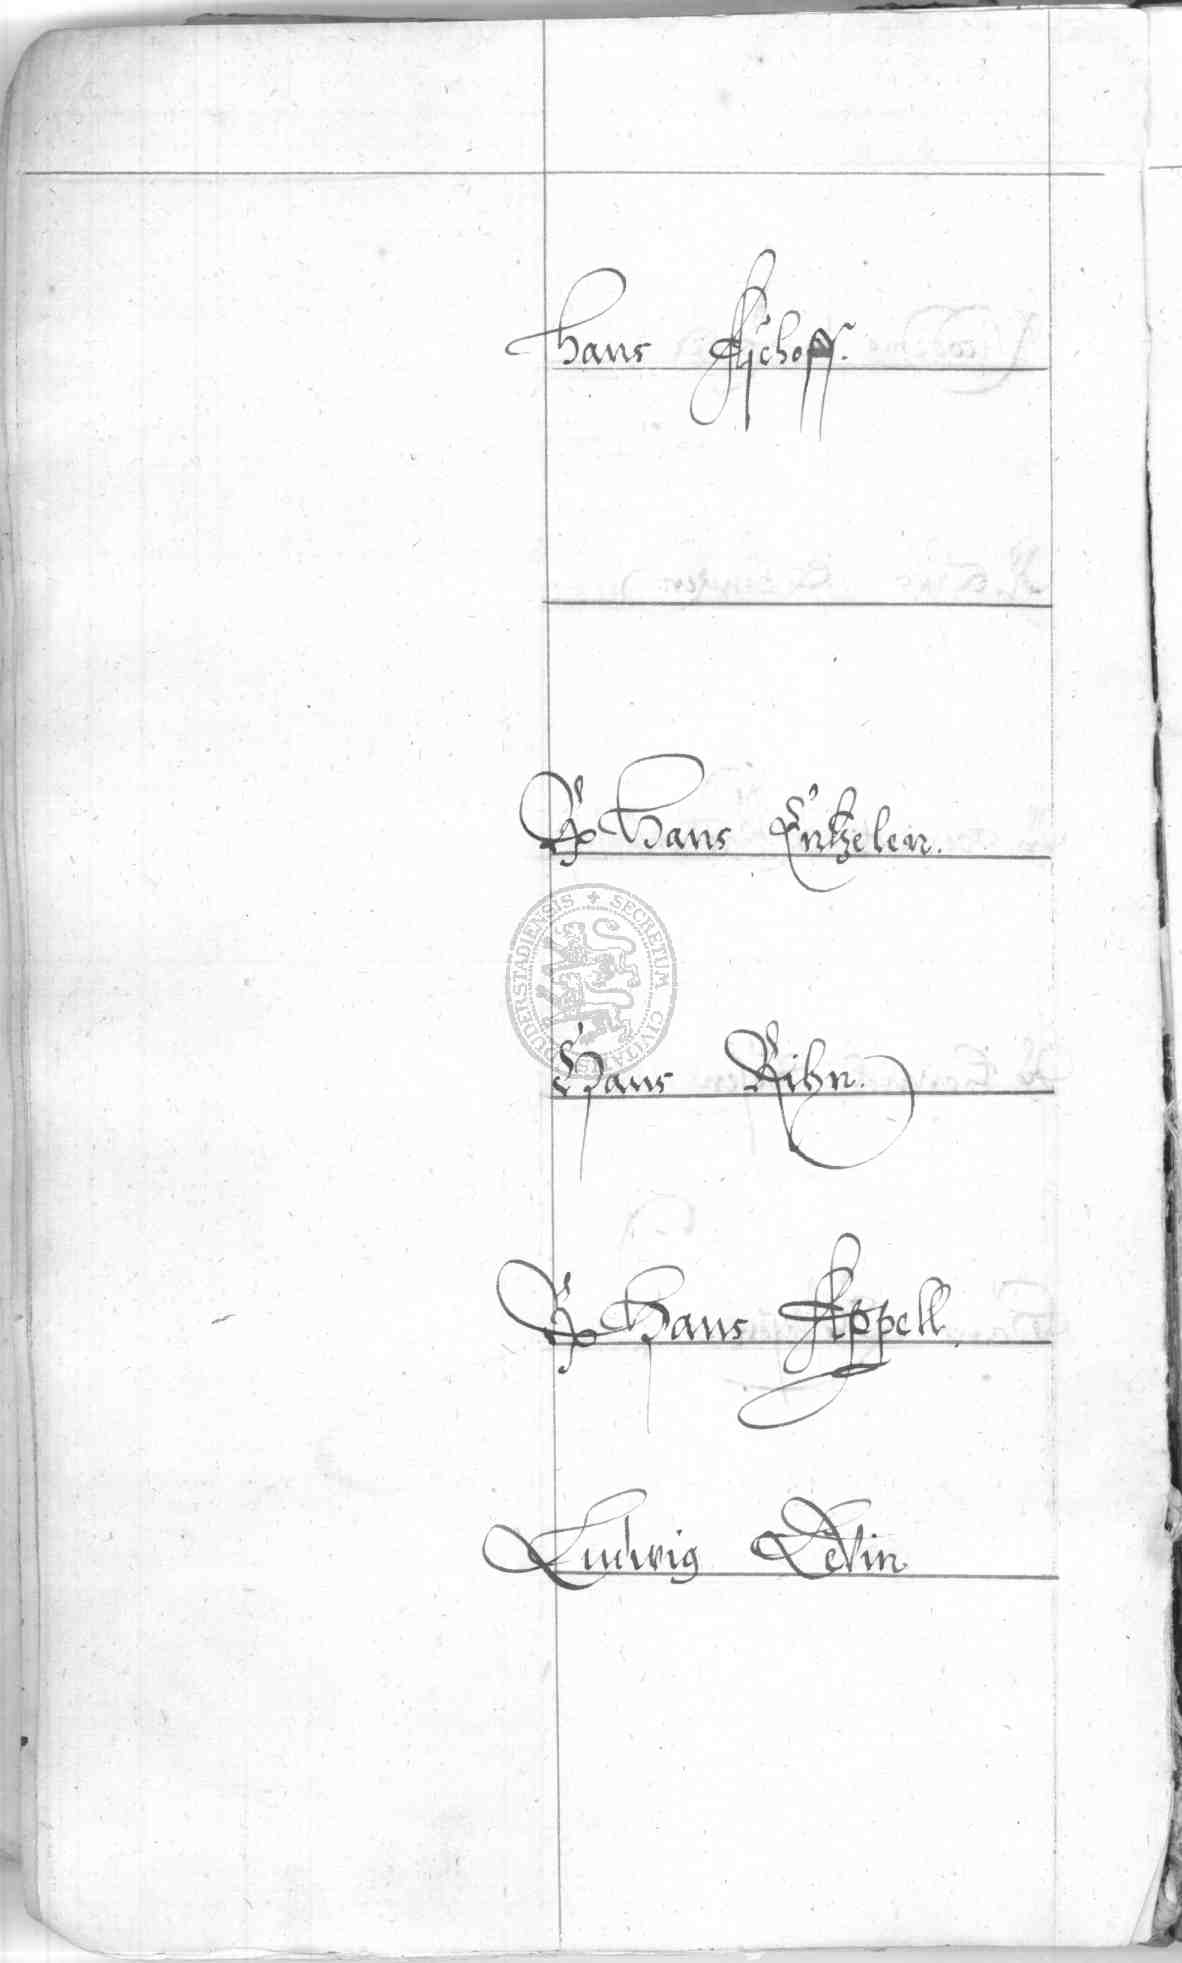 Hans Aschoff.
Hans Entzelen.
SECRETUM CIVITATIS DUDERSTADIENSIS
Hans Kihn.
Hans Appell
Ludwig Levin